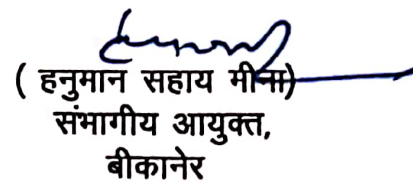 ( हनुमान सहाय मीना)
संभागीय आयुक्त,
बीकानेर